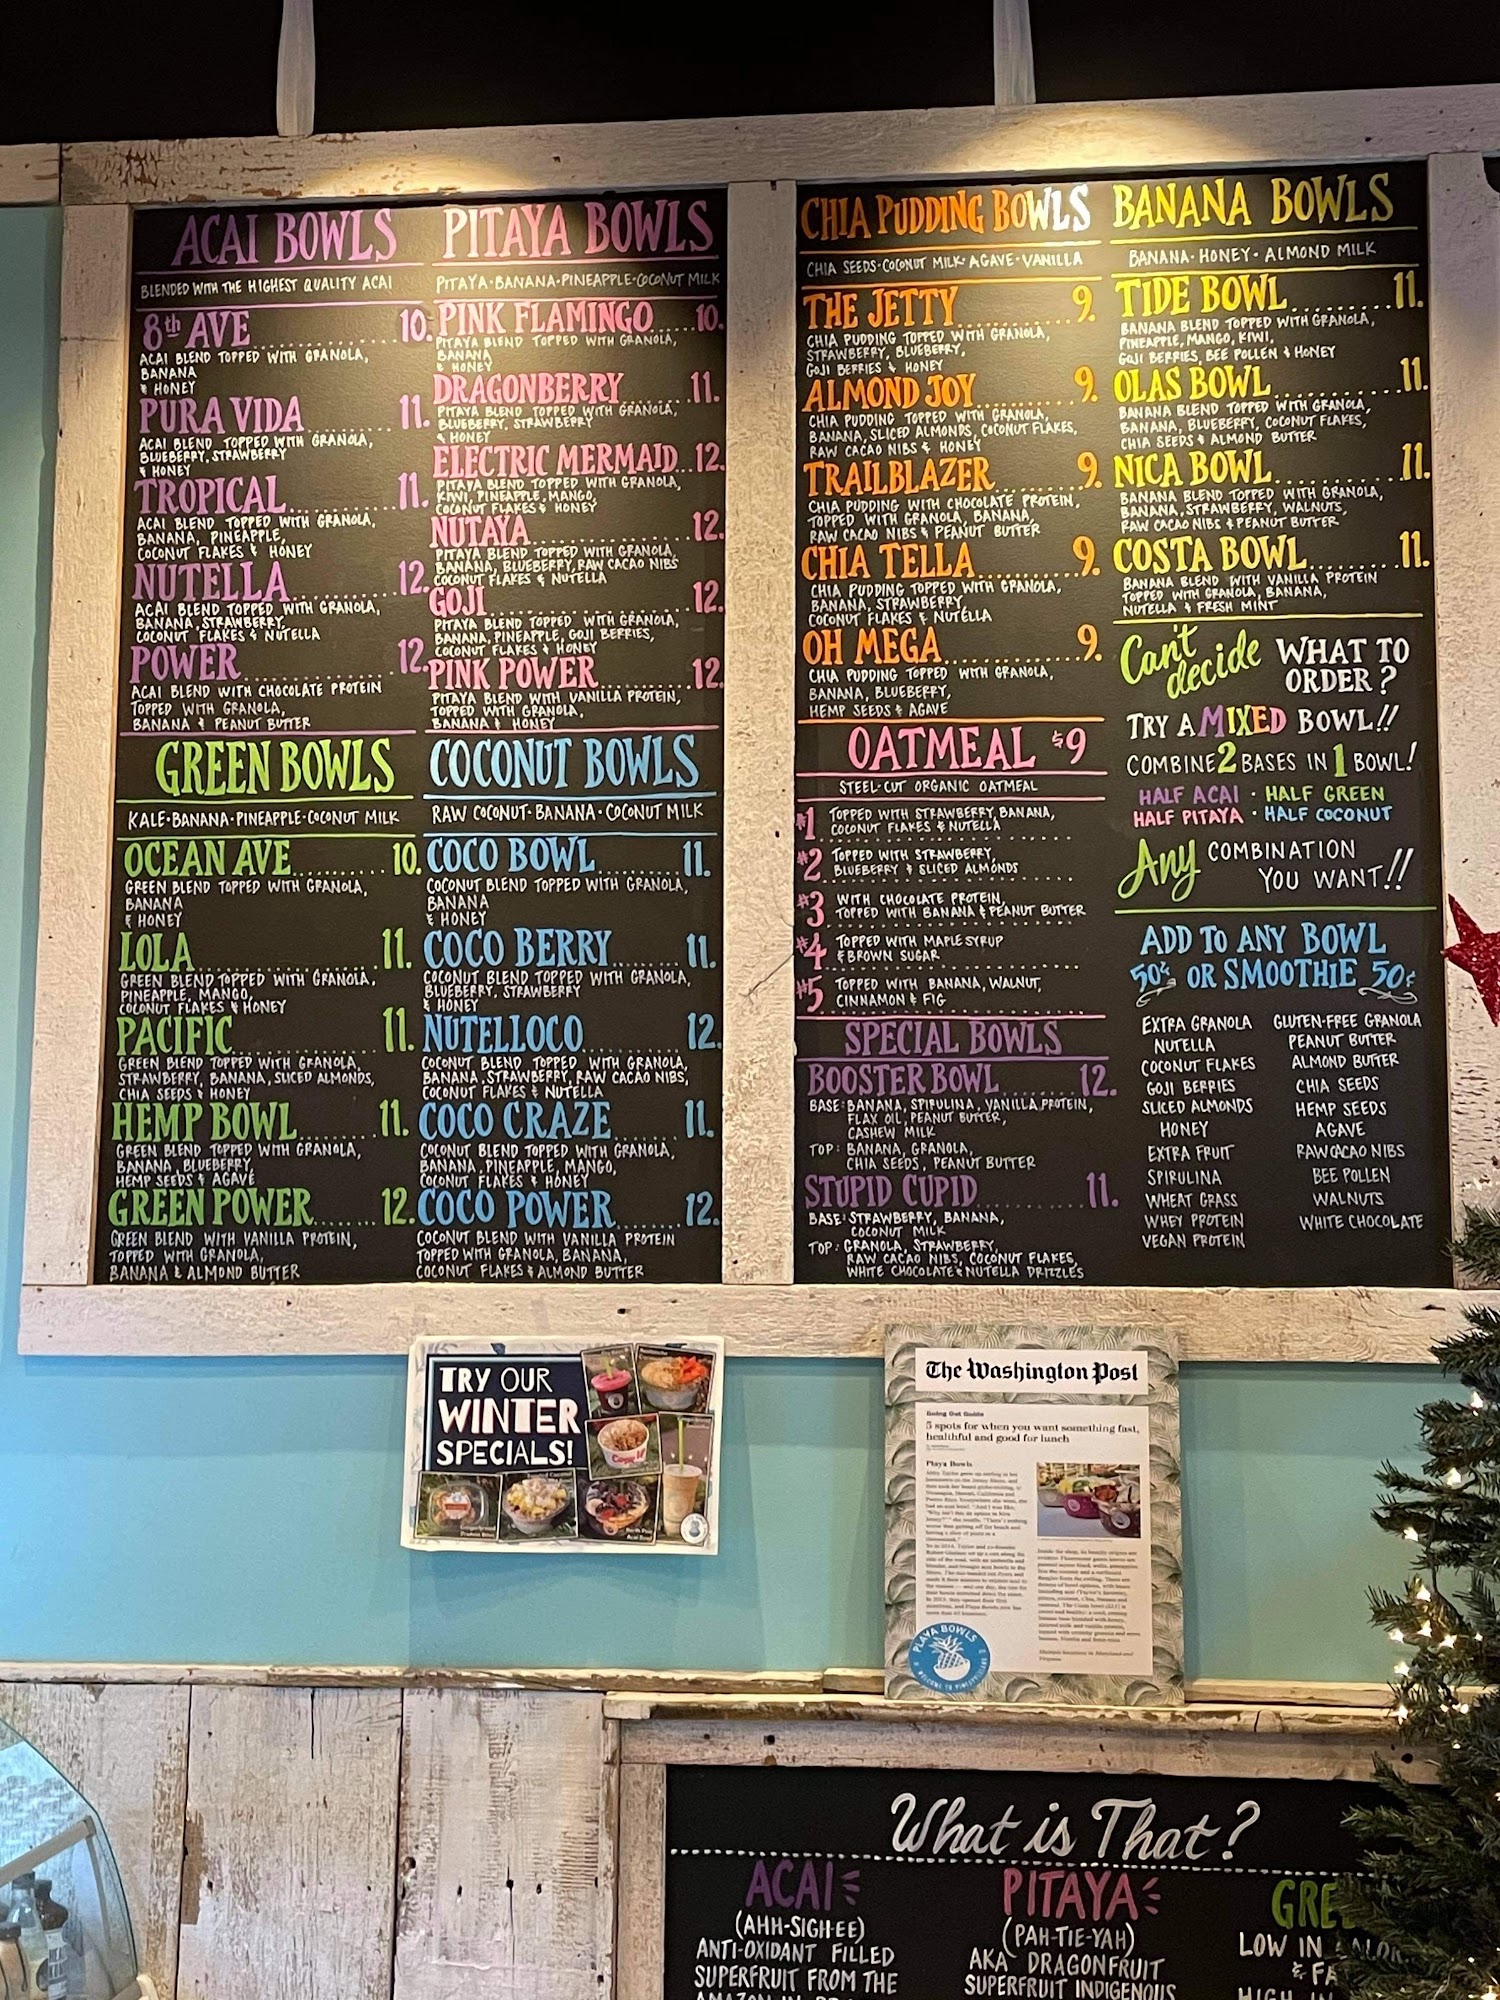 ACAI BOWLS
BLENDED WITH THE HIGHEST QUALITY ACAI
8th AVE 10.
ACAI BLEND TOPPED WITH GRANOLA,
BANANA
& HONEY
PURA VIDA 11.
ACAI BLEND TOPPED WITH GRANOLA,
BLUEBERRY, STRAWBERRY
& HONEY
TROPICAL 11.
ACAI BLEND TOPPED WITH GRANOLA,
BANANA, PINEAPPLE,
COCONUT FLAKES & HONEY
NUTELLA 12.
ACAI BLEND TOPPED WITH GRANOLA,
BANANA, STRAWBERRY,
COCONUT FLAKES & NUTELLA
POWER 12.
ACAI BLEND WITH CHOCOLATE PROTEIN
TOPPED WITH GRANOLA,
BANANA & PEANUT BUTTER
PITAYA BOWLS
PITAYA·BANANA·PINEAPPLE·COCONUT MILK
PINK FLAMINGO 10.
PITAYA BLEND TOPPED WITH GRANOLA,
BANANA
& HONEY
DRAGONBERRY 11.
PITAYA BLEND TOPPED WITH GRANOLA,
BLUEBERRY, STRAWBERRY
& HONEY
ELECTRIC MERMAID 12.
PITAYA BLEND TOPPED WITH GRANOLA,
KIWI, PINEAPPLE, MANGO,
COCONUT FLAKES & HONEY
NUTAYA 12.
PITAYA BLEND TOPPED WITH GRANOLA,
BANANA, BLUEBERRY, RAW CACAO NIBS
COCONUT FLAKES & NUTELLA
GOJI 12.
PITAYA BLEND TOPPED WITH GRANOLA,
BANANA, PINEAPPLE, GOJI BERRIES,
COCONUT FLAKES & HONEY
PINK POWER 12.
PITAYA BLEND WITH VANILLA PROTEIN,
TOPPED WITH GRANOLA,
BANANA & HONEY
GREEN BOWLS
KALE·BANANA·PINEAPPLE·COCONUT MILK
OCEAN AVE 10.
GREEN BLEND TOPPED WITH GRANOLA,
BANANA
& HONEY
LOLA 11.
GREEN BLEND TOPPED WITH GRANOLA,
PINEAPPLE, MANGO,
COCONUT FLAKES & HONEY
PACIFIC 11.
GREEN BLEND TOPPED WITH GRANOLA,
STRAWBERRY, BANANA, SLICED ALMONDS,
CHIA SEEDS & HONEY
HEMP BOWL 11.
GREEN BLEND TOPPED WITH GRANOLA,
BANANA, BLUEBERRY,
HEMP SEEDS & AGAVE
GREEN POWER 12.
GREEN BLEND WITH VANILLA PROTEIN,
TOPPED WITH GRANOLA,
BANANA & ALMOND BUTTER
COCONUT BOWLS
RAW COCONUT·BANANA·COCONUT MILK
COCO BOWL 11.
COCONUT BLEND TOPPED WITH GRANOLA,
BANANA
& HONEY
COCO BERRY 11.
COCONUT BLEND TOPPED WITH GRANOLA,
BLUEBERRY, STRAWBERRY
& HONEY
NUTELLOCO 12.
COCONUT BLEND TOPPED WITH GRANOLA,
BANANA, STRAWBERRY, RAW CACAO NIBS,
COCONUT FLAKES & NUTELLA
COCO CRAZE 11.
COCONUT BLEND TOPPED WITH GRANOLA,
BANANA, PINEAPPLE, MANGO,
COCONUT FLAKES & HONEY
COCO POWER 12.
COCONUT BLEND WITH VANILLA PROTEIN
TOPPED WITH GRANOLA, BANANA,
COCONUT FLAKES & ALMOND BUTTER
CHIA PUDDING BOWLS
CHIA SEEDS·COCONUT MILK·AGAVE·VANILLA
THE JETTY 9.
CHIA PUDDING TOPPED WITH GRANOLA,
STRAWBERRY, BLUEBERRY,
GOJI BERRIES & HONEY
ALMOND JOY 9.
CHIA PUDDING TOPPED WITH GRANOLA,
BANANA, SLICED ALMONDS, COCONUT FLAKES,
RAW CACAO NIBS & HONEY
TRAILBLAZER 9.
CHIA PUDDING WITH CHOCOLATE PROTEIN,
TOPPED WITH GRANOLA, BANANA,
RAW CACAO NIBS & PEANUT BUTTER
CHIA TELLA 9.
CHIA PUDDING TOPPED WITH GRANOLA,
BANANA, STRAWBERRY,
COCONUT FLAKES & NUTELLA
OH MEGA 9.
CHIA PUDDING TOPPED WITH GRANOLA,
BANANA, BLUEBERRY,
HEMP SEEDS & AGAVE
OATMEAL $9
STEEL-CUT ORGANIC OATMEAL
#1 TOPPED WITH STRAWBERRY, BANANA,
COCONUT FLAKES & NUTELLA
#2 TOPPED WITH STRAWBERRY,
BLUEBERRY & SLICED ALMONDS
#3 WITH CHOCOLATE PROTEIN,
TOPPED WITH BANANA & PEANUT BUTTER
#4 TOPPED WITH MAPLE SYRUP
& BROWN SUGAR
#5 TOPPED WITH BANANA, WALNUT,
CINNAMON & FIG
SPECIAL BOWLS
BOOSTER BOWL 12.
BASE: BANANA, SPIRULINA, VANILLA PROTEIN,
FLAX OIL, PEANUT BUTTER,
CASHEW MILK
TOP: BANANA, GRANOLA,
CHIA SEEDS, PEANUT BUTTER
STUPID CUPID 11.
BASE: STRAWBERRY, BANANA,
COCONUT MILK
TOP: GRANOLA, STRAWBERRY,
RAW CACAO NIBS, COCONUT FLAKES,
WHITE CHOCOLATE & NUTELLA DRIZZLES
BANANA BOWLS
BANANA·HONEY·ALMOND MILK
TIDE BOWL 11.
BANANA BLEND TOPPED WITH GRANOLA,
PINEAPPLE, MANGO, KIWI,
GOJI BERRIES, BEE POLLEN & HONEY
OLAS BOWL 11.
BANANA BLEND TOPPED WITH GRANOLA,
BANANA, BLUEBERRY, COCONUT FLAKES,
CHIA SEEDS & ALMOND BUTTER
NICA BOWL 11.
BANANA BLEND TOPPED WITH GRANOLA,
BANANA, STRAWBERRY, WALNUTS,
RAW CACAO NIBS & PEANUT BUTTER
COSTA BOWL 11.
BANANA BLEND WITH VANILLA PROTEIN
TOPPED WITH GRANOLA, BANANA,
NUTELLA & FRESH MINT
Can't decide WHAT TO
ORDER?
TRY A MIXED BOWL!!
COMBINE 2 BASES IN 1 BOWL!
HALF ACAI · HALF GREEN
HALF PITAYA · HALF COCONUT
Any COMBINATION
YOU WANT!!
ADD TO ANY BOWL
50¢ OR SMOOTHIE 50¢
EXTRA GRANOLA
NUTELLA
COCONUT FLAKES
GOJI BERRIES
SLICED ALMONDS
HONEY
EXTRA FRUIT
SPIRULINA
WHEAT GRASS
WHEY PROTEIN
VEGAN PROTEIN
GLUTEN-FREE GRANOLA
PEANUT BUTTER
ALMOND BUTTER
CHIA SEEDS
HEMP SEEDS
AGAVE
RAW CACAO NIBS
BEE POLLEN
WALNUTS
WHITE CHOCOLATE
TRY OUR
WINTER
SPECIALS!
The Washington Post
Going Out Guide
5 spots for when you want something fast,
healthful and good for lunch
Playa Bowls
PLAYA BOWLS
What is That?
ACAI
(AHH-SIGH-EE)
ANTI-OXIDANT FILLED
SUPERFRUIT FROM THE
PITAYA
(PAH-TIE-YAH)
AKA DRAGONFRUIT
SUPERFRUIT INDIGENOUS
LOW IN
&
HIGH IN